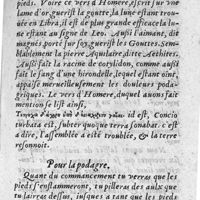 pieds. Voire ce vers d'Homere, escrit sur vne
lame d'or, guerist la goutte, la lune estant trou-
uée en Libra, il est de plus grande efficace la lu-
ne estant au signe de Leo. Aussi l'aimant, dit
magnés porté sur soy, guerist les Gouttes. Sem-
blablement la pierre Aquilaire, dite Aethites.
Aussi fait la racine de cotylidon, comme aussi
fait le sang d'une hirondelle, lequel estant oint,
appaise merueilleusement les douleurs podag-
riques. Le vers d'Homere, duquel auons fait
mention se list ainsi.
id est, Concio
turbata est, subter quoque terra sonabar. c'est
a dire, l'assemblée a esté troublée, & la terre
resonnoit.
Pour la podagre.
Quant du commancement tu verras que les
pieds s'enflammeront, tu pilleras des aulx que
tu laisras dessus, iusques a tant que les pieds